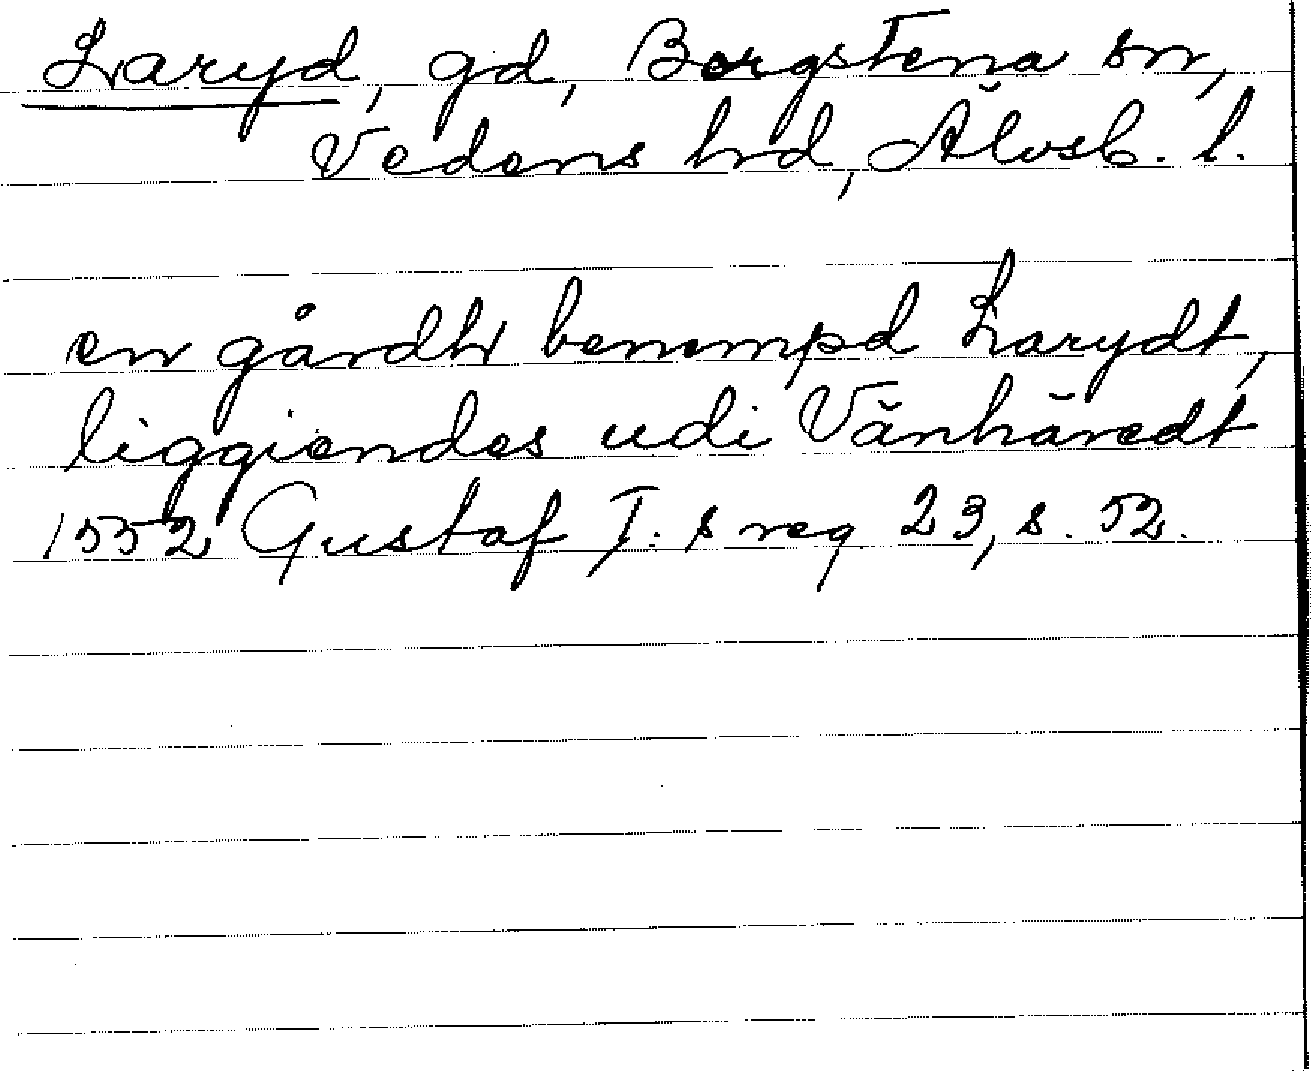 Laryd, gd, Borgstena sn,
Vedens hrd, Älvsb. l.
en gårdh benempd Larydt,
liggiendes udi Vänhäredt
1552 Gustaf I:s reg 23, s. 52.